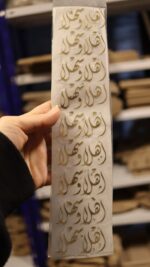 أهلا وسهلا
أهلا وسهلا
أهلا وسهلا
أهلا وسهلا
أهلا وسهلا
أهلا وسهلا
أهلا وسهلا
أهلا وسهلا
أهلا وسهلا